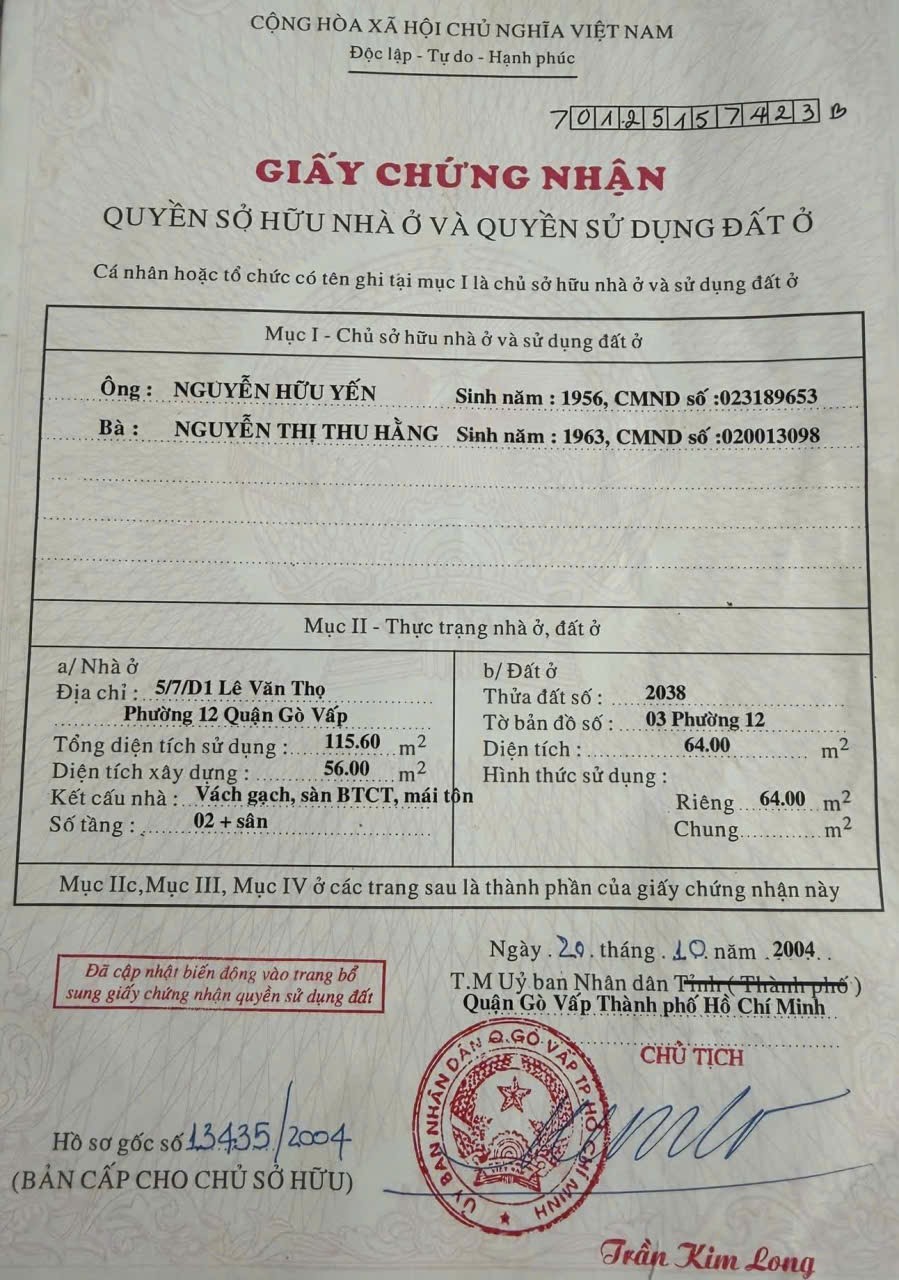 CỘNG HÒA XÃ HỘI CHỦ NGHĨA VIỆT NAM
Độc lập - Tự do - Hạnh phúc
7012515 7423 B
GIẤY CHỨNG NHẬN
QUYỀN SỞ HỮU NHÀ Ở VÀ QUYỀN SỬ DỤNG ĐẤT Ở
Cá nhân hoặc tổ chức có tên ghi tại mục I là chủ sở hữu nhà ở và sử dụng đất ở
Mục I - Chủ sở hữu nhà ở và sử dụng đất ở
Ông : NGUYỄN HỮU YẾN Sinh năm : 1956, CMND số :023189653
Bà : NGUYỄN THỊ THU HẰNG Sinh năm : 1963, CMND số :020013098
Mục II - Thực trạng nhà ở, đất ở
a/ Nhà ở
Địa chỉ : 5/7/D1 Lê Văn Thọ
Phường 12 Quận Gò Vấp
Tổng diện tích sử dụng : 115.60 m2
Diện tích xây dựng : 56.00 m2
Kết cấu nhà : Vách gạch, sàn BTCT, mái tôn
Số tầng : 02 + sân
b/ Đất ở
Thửa đất số : 2038
Tờ bản đồ số : 03 Phường 12
Diện tích : 64.00 m2
Hình thức sử dụng :
Riêng 64.00 m2
Chung m2
Mục IIc, Mục III, Mục IV ở các trang sau là thành phần của giấy chứng nhận này
Ngày 20 tháng 10 năm 2004
T.M Uỷ ban Nhân dân Tỉnh ( Thành phố )
Quận Gò Vấp Thành phố Hồ Chí Minh
CHỦ TỊCH
Đã cập nhật biến động vào trang bổ
sung giấy chứng nhận quyền sử dụng đất
ỦY BAN NHÂN DÂN Q.GÒ VẤP TP.HỒ CHÍ MINH
VIỆT NAM
Hồ sơ gốc số 13435/2004
(BẢN CẤP CHO CHỦ SỞ HỮU)
Trần Kim Long